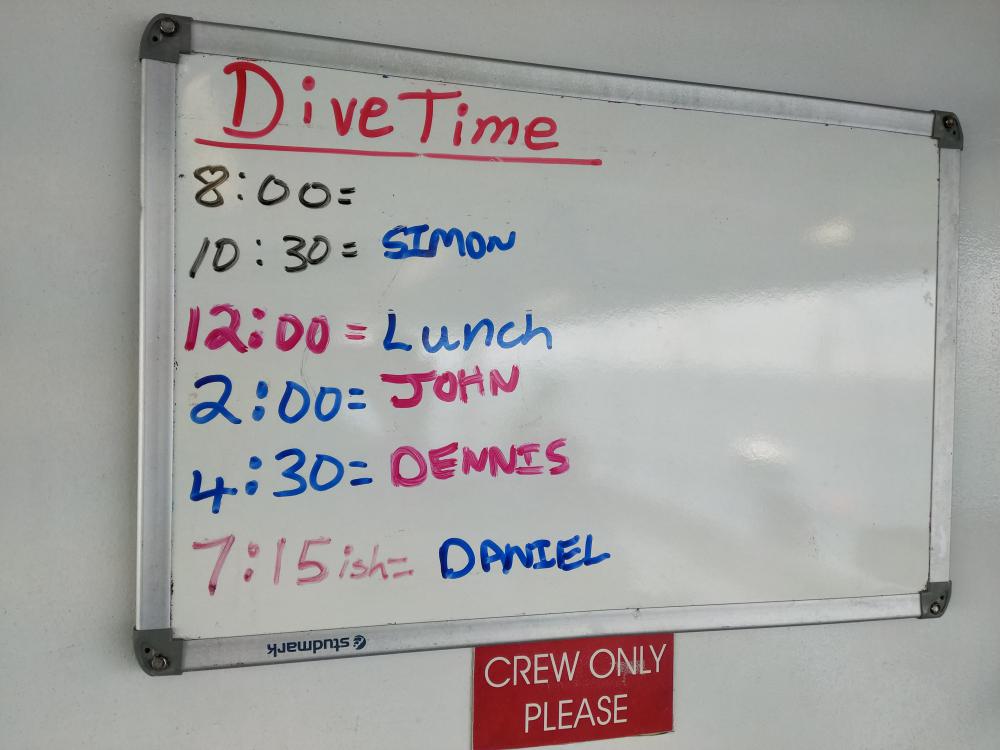 Dive Time
8:00=
10:30= SIMON
12:00= Lunch
2:00= JOHN
4:30= DENNIS
7:15ish= DANIEL
studmark
CREW ONLY
PLEASE